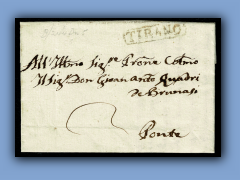 TIRANO
All' Illmo Sigre Prone Colmo
Il Sigr Don Gioan Anto Quadri
de Brunasi
Ponte